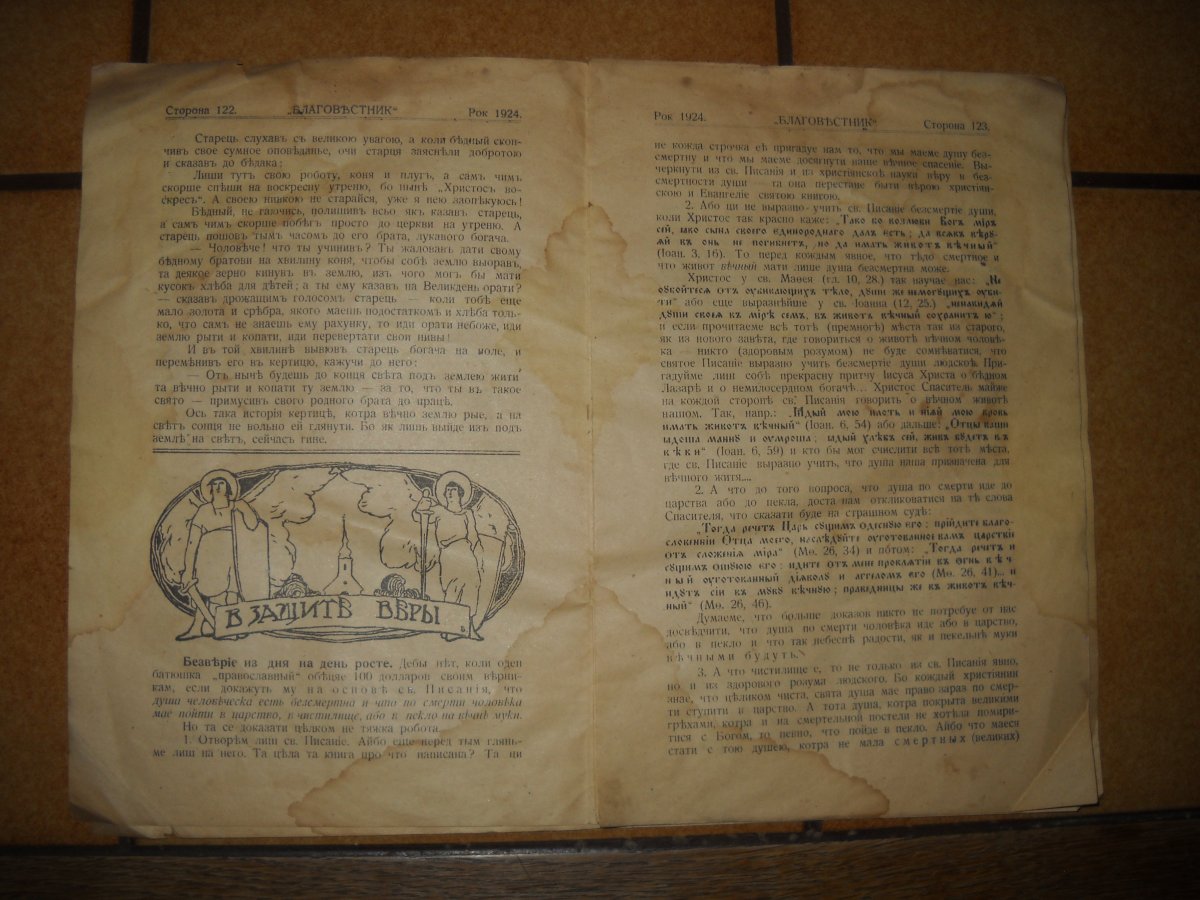 Сторона 122. „БЛАГОВѢСТНИК“ Рок 1924.
Старець слухав съ великою увагою, а коли бѣдный скон-
чив свое сумное оповѣданье, очи старця заяснѣли добротою
и сказав до бѣдака;
Лиши тутъ свою роботу, коня и плугъ, а самъ чимъ
скорше спѣши на воскресну утреню, бо нынѣ „Христосъ во-
скресъ“. А своею нивкою не старайся, уже я нею заопѣкуюсь!
Бѣдный, не гаючись, полишивъ всьо якъ казавъ старець,
а самъ чимъ скорше побѣгъ просто до церкви на утреню. А
старець пошовъ тымъ часомъ до его брата, лукавого богача.
— Чоловѣче! что ты учинивъ? Ты жаловавъ дати свому
бѣдному братови на хвилину коня, чтобы собѣ землю выоравъ,
та деякое зерно кинувъ въ землю, изъ чого могъ бы мати
кусокъ хлѣба для дѣтей; а ты ему казавъ на Великдень орати?
— сказавъ дрожащимъ голосомъ старець — коли тобѣ еще
мало золота и срѣбра, якого маешь подостаткомъ и хлѣба толь-
ко, что самъ не знаешь ему рахунку, то иди орати небоже, иди
землю рыти и копати, иди перевертати свои нивы!
И въ той хвилинѣ вывювъ старець богача на поле, и
перемѣнивъ его въ кертицю, кажучи до него:
— Отъ нынѣ будешь до конця свѣта подъ землею жити
та вѣчно рыти и копати ту землю — за то, что ты въ такое
свято — примусивъ свого родного брата до працѣ.
Ось така исторія кертицѣ, котра вѣчно землю рые, а на
свѣтъ сонця не вольно ей глянути. Бо як лишь выйде изъ подъ
землѣ на свѣтъ, сейчасъ гине.
В ЗАЩИТѢ ВѢРЫ
Безвѣріе из дня на день росте. Дебы нѣт, коли оден
батюшка „православный“ обѣцяе 100 долларов своим вѣрни-
кам, если докажуть му на основѣ св. Писанія, что
душа человѣческа есть безсмертна и что по смерти чоловѣка
мае пойти в царство, в чистилище, або в пекло на вѣчнѣ муки.
Но та се доказати цѣлком не тяжка робота.
1. Отворѣм лиш св. Писаніе. Айбо еще перед тым гляньь-
ме лиш на него. Та цѣла та книга про что написана? Та ци
Рок 1924. „БЛАГОВѢСТНИК“ Сторона 123.
не кожда строчка еѣ пригадуе нам то, что мы маеме душу без-
смертну и что мы маеме досягнути наше вѣчное спасеніе. Вы-
черкнути из св. Писанія и из христіянскоѣ науки вѣру в без-
смертности души — та она перестане быти вѣрою христіян-
скою и Евангеліе святою книгою.
2. Або ци не выразно учить св. Писаніе безсмертіе души,
коли Христос так красно каже: „Тако бо возлюби Богъ міръ
сей, ꙗко сына своего единороднаго далъ есть; да всѧкъ вѣрꙋ-
ѧй въ онь не погибнетъ, но да имать животъ вѣчный“
(Іоан. 3, 16). То перед каждым явное, что тѣло смертное и
что живот вѣчный мати лише душа безсмертна може.
Христос у св. Маѳея (гл. 10, 28.) так научае нас: „Не
ᲂубойтесѧ отъ ᲂубивающихъ тѣло, дꙋши же немогꙋщихъ ᲂуби-
ти“ або еще выразнѣйше у св. Іоанна (12, 25.) „ненавидѧй
дꙋши своеѧ въ мірѣ семъ, въ животъ вѣчный сохранитъ ю“;
и если прочитаеме всѣ тотѣ (премногѣ) мѣста так из старого,
як из нового завѣта, где говориться о животѣ вѣчном чоловѣ-
ка — никто (здоровым розумом) не буде сомнѣватися, что
святое Писаніе выразно учить безсмертіе души людскоѣ. При-
гадуйме лиш собѣ прекрасну притчу Ісуса Христа о бѣдном
Лазарѣ и о немилосердном богачѣ... Христос Спаситель майже
на каждой сторонѣ св. Писанія говорить о вѣчном животѣ
нашом. Так, напр.: „Ꙗдый мою плоть и піѧй мою кровь
имать животъ вѣчный“ (Іоан. 6, 54) або дальше! „Отцы ваши
ꙗдоша маннꙋ и ᲂумроша; ꙗдый хлѣбъ сей, живъ бꙋдетъ въ
вѣки“ (Іоан. 6, 59) и кто бы мог счислити всѣ тотѣ мѣста,
где св. Писаніе выразно учить, что душа наша призначена для
вѣчного житя....
2. А что до того вопроса, что душа по смерти иде до
царства або до пекла, доста нам откликоватися на тѣ слова
Спасителя, что сказати буде на страшном судѣ:
„Тогда речетъ Царь сꙋщимъ одеснꙋю его: прійдите благо-
словенніи Отца моего, наслѣдꙋйте ᲂуготованное вамъ царствіе
отъ сложеніѧ міра“ (Мѳ. 26, 34) и потом: „Тогда речетъ и
сꙋщимъ ошꙋюю его: идите отъ мене проклѧтіи въ огнь вѣч-
ный ᲂуготованный діаволꙋ и аггеломъ его (Мѳ. 26, 41)... и
идꙋтъ сіи въ мꙋкꙋ вѣчнꙋю; праведницы же въ животъ вѣч-
ный“ (Мѳ. 26, 46).
Думаеме, что больше доказов никто не потребуе от нас
досвѣдчити, что душа по смерти чоловѣка иде або в царство,
або в пекло и что так небеснѣ радости, як и пекельнѣ муки
вѣчными будуть.
3. А что чистилище е, то не только из св. Писанія явно,
но и из здорового розума людского. Бо кождый христіянин
знае, что цѣликом чиста, свята душа мае право зараз по смер-
ти ступити в царство. А тота душа, котра покрыта великими
грѣхами, котра и на смертельной постели не хотѣла помири-
тися с Богом, то певно, что пойде в пекло. Айбо что маеся
стати с тою душею, котра не мала смертных (великих)